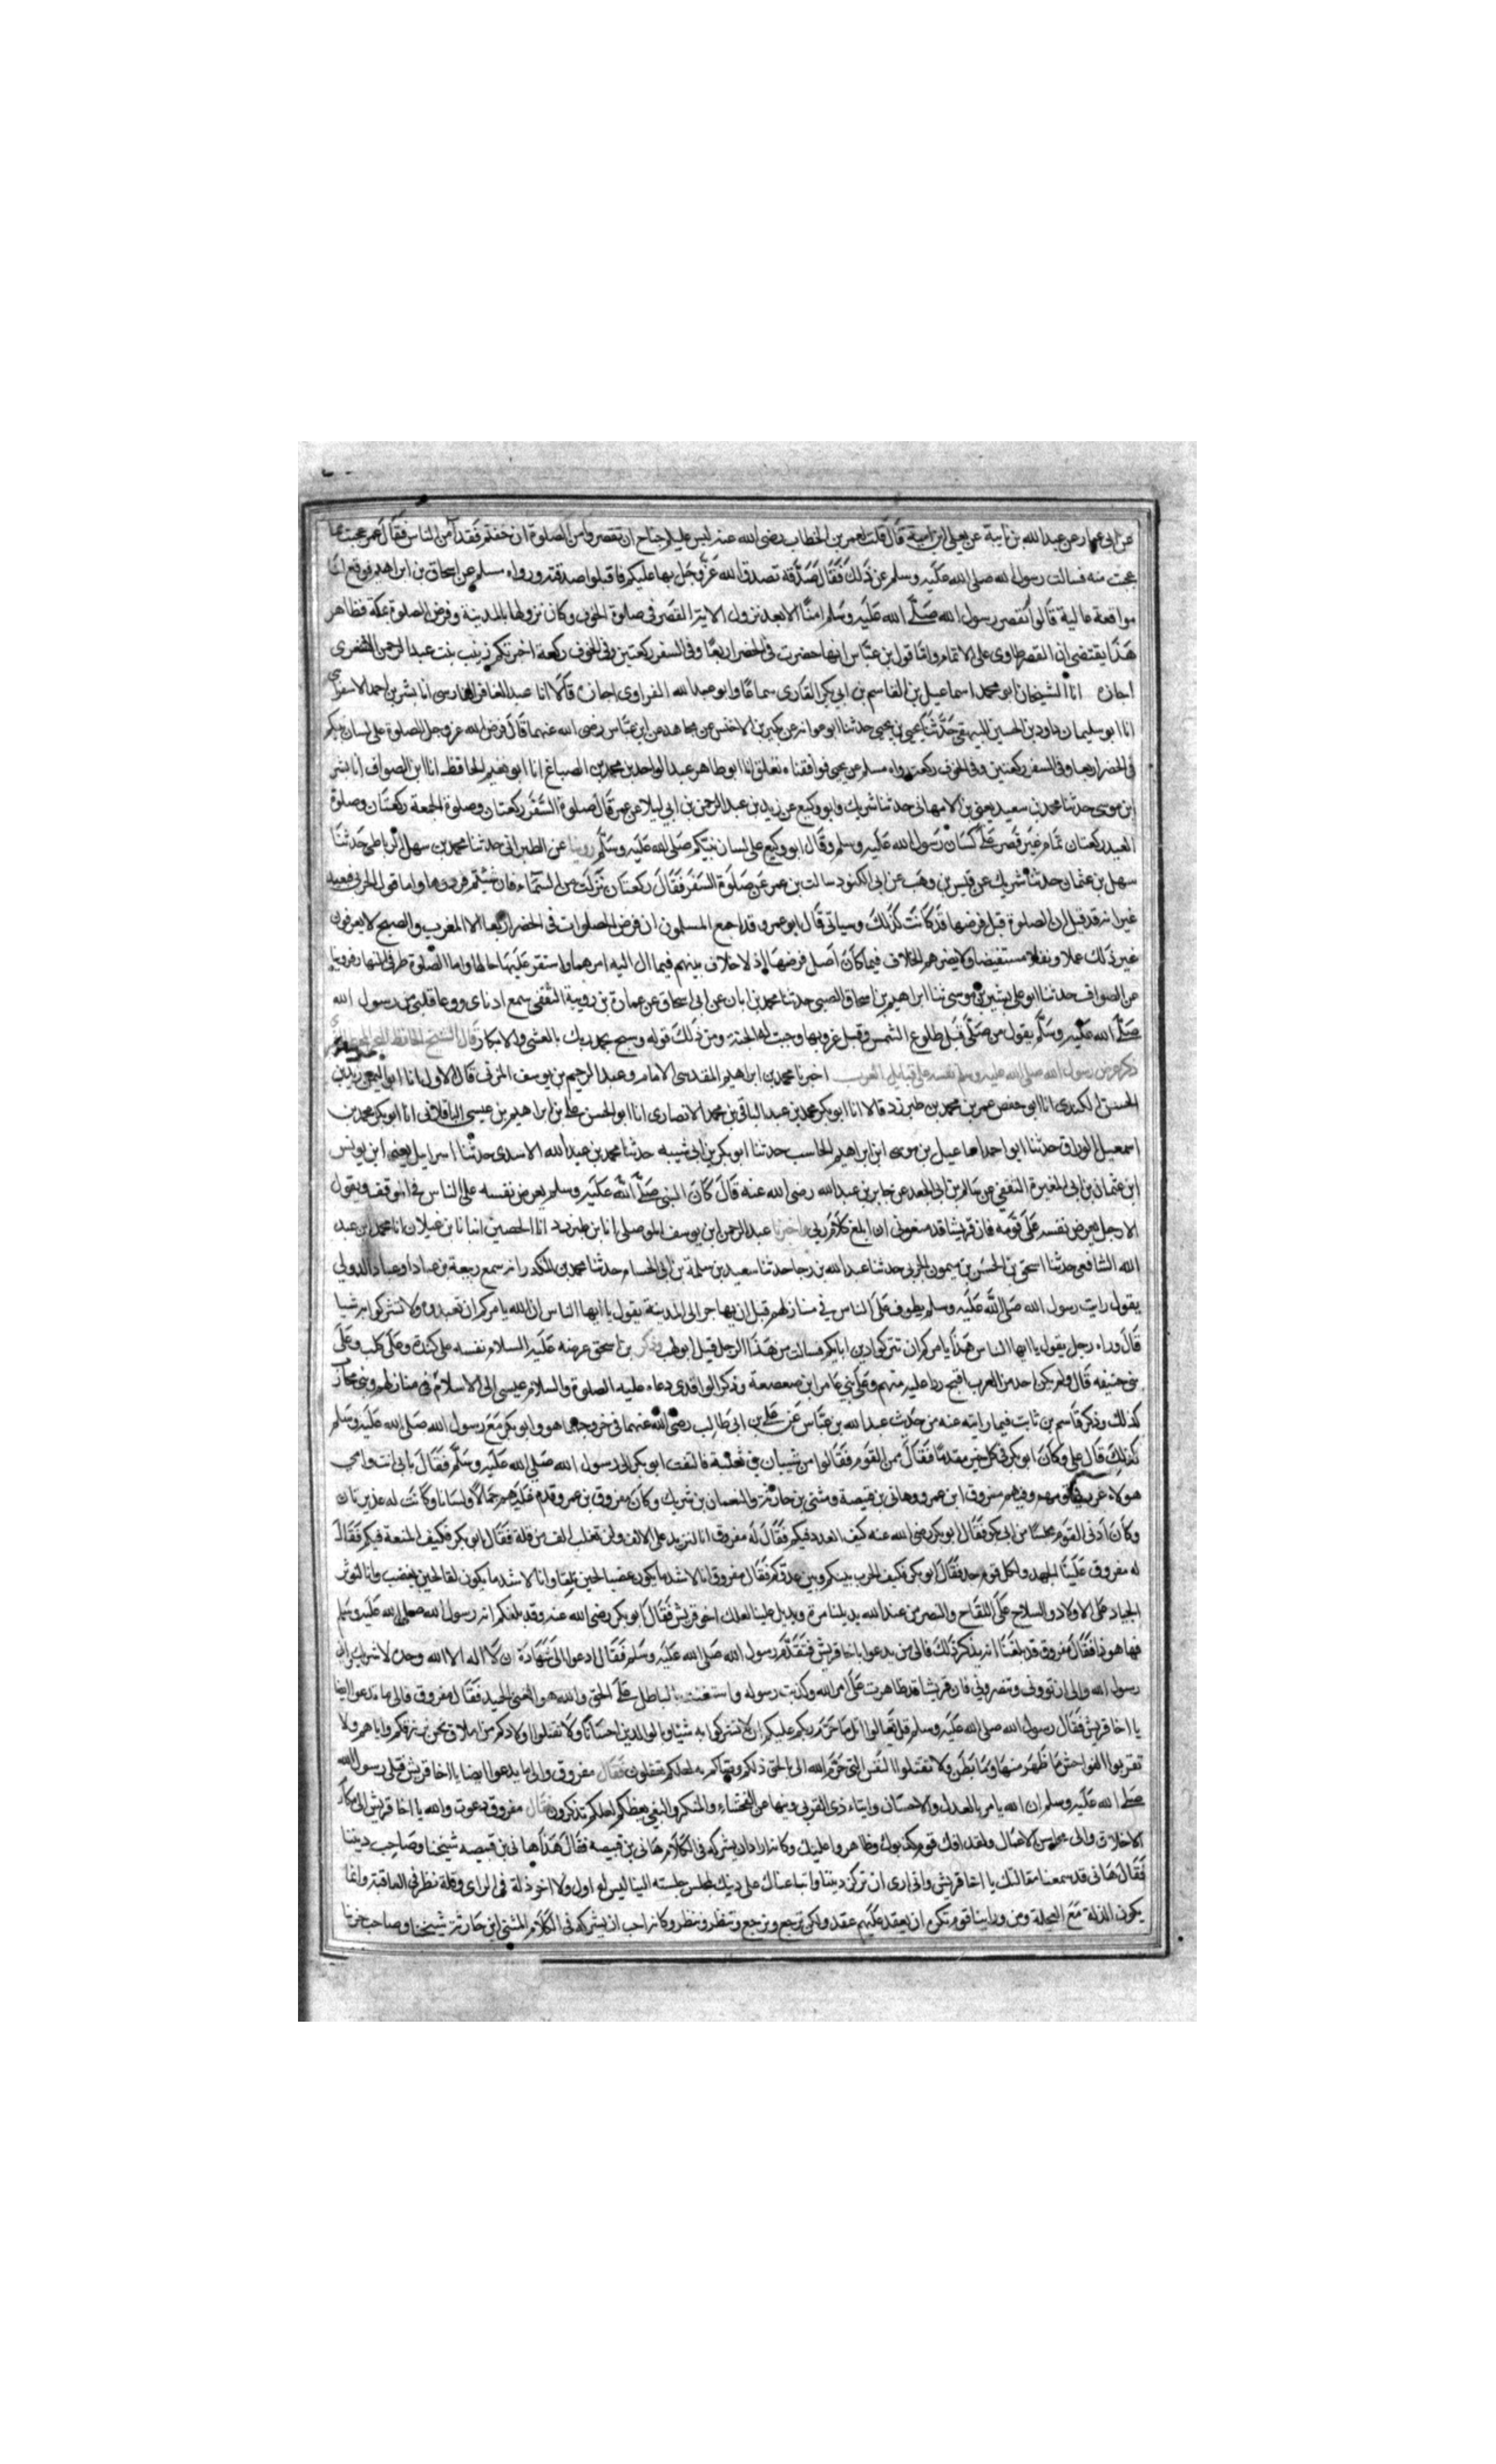 عن ابى عمار عن عبدالله بن بابية عن يعلى بن امية قال قلت لعمر بن الخطاب رضى الله عنه ليس عليكم جناح ان تقصروا من الصلوة ان خفتم فقد أمن الناس فقال عمر عجبت مما
عجبت منه فسالت رسول الله صلى الله عليه وسلم عن ذلك فقال صدقة تصدق الله عز وجل بها عليكم فاقبلوا صدقته ورواه مسلم عن اسحاق بن ابراهيم فوقع لنا
موافقة عالية قالوا ولم يقصر رسول الله صلى الله عليه وسلم امنا الا بعد نزول الاية القصر فى صلوة الخوف وكان نزولها بالمدينة وفرض الصلوة بمكة فظاهر
هذا يقتضى ان القصر طاوى على الاتمام واما قول ابن عباس انها حضرت فى الحضر اربعا وفى السفر ركعتين وفى الخوف ركعة اخبرتكم زينب بنت عبد الرحمن الشعرى
اجازه انا الشيخان ابو محمد اسماعيل بن القاسم بن ابى بكر القارى سماعا وابو عبد الله الفراوى اجازة قالا انا عبد الغافر الفارسى انا بشر بن احمد الاسفراى
انا ابو سليمان داود بن الحسين البيهقى حدثنا يحيى بن يحيى حدثنا ابو عوانه عن بكير بن الاخنس عن مجاهد عن ابن عباس رضى الله عنهما قال فرض الله عز وجل الصلوة على لسان نبيكم
فى الحضر اربعا وفى السفر ركعتين وفى الخوف ركعة رواه مسلم عن يحيى فوافقناه بعلو انا ابو طاهر عبد الواحد بن محمد بن الصباغ انا ابو نعيم الحافظ انا ابن الصواف انا بشر
ابن موسى حدثنا محمد بن سعيد يعنى بن الاصبهانى حدثنا شريك وابو وكيع عن زبيد بن عبد الرحمن بن ابى ليلا عن عمر قال صلوة السفر ركعتان وصلوة الجمعة ركعتان وصلوة
العيد ركعتان تمام غير قصر على لسان رسول الله عليه وسلم وقال ابو وكيع على لسان نبيكم صلى الله عليه وسلم روينا عن الطبرانى حدثنا محمد بن سهل الرباطى حدثنا
سهل بن عثمان حدثنا شريك عن قيس بن وهب عن ابى الكنود سالت بن عمر عن صلوة السفر فقال ركعتان نزلت من السماء فان شئتم فردوها واما قول الحربى فبعيد
غير انه قد قيل ان الصلوة قبل فرضها قد كانت كذلك وسياتى قال ابو عمر وقد اجمع المسلمون ان فرض الصلوات فى الحضر اربعا الا المغرب والصبح لا يعرفون
غير ذلك عملا ونقلا مستفيضا ولا يضرهم الخلاف فيما كان اصل فرضها اذ لا خلاف بينهم فيما ال اليه امرهما واستقر عليه حالها واما الصلوة طرفى النهار فروينا
عن الصواف حدثنا ابو على بشير بن موسى ثنا ابراهيم بن اسحاق الصبى حدثنا محمد بن ابان عن ابى اسحاق عن عمارة بن رويبة الثقفى سمع اذناى ووعا قلبى من رسول الله
صلى الله عليه وسلم يقول من صلى قبل طلوع الشمس وقبل غروبها وجبت له الجنة ومن ذلك قوله وسبح بحمد ربك بالعشى والابكار قال الشيخ الحافظ
ذكر عرض رسول الله صلى الله عليه وسلم نفسه على قبايل العرب اخبرنا محمد بن ابراهيم المقدسى الامام وعبد الرحيم بن يوسف المزنى قال الاول انا ابو اليمن زيد بن
الحسن الكندى انا ابو حفص عمر بن محمد بن طبرزد قالا انا ابو بكر محمد بن عبد الباقى بن محمد الانصارى انا ابو الحسن على بن ابراهيم بن عيسى الباقلانى انا ابو بكر محمد بن
اسمعيل الوراق حدثنا ابو احمد اسماعيل بن موسى ابن ابراهيم الحاسب حدثنا ابو بكر بن ابى شيبه حدثنا محمد بن عبد الله الاسدى حدثنا اسرايل يعنى ابن يونس
ابن عثمان بن ابى المغيرة الثقفى عن سالم بن ابى الجعد عن جابر بن عبد الله رضى الله عنه قال كان النبى صلى الله عليه وسلم يعرض نفسه على الناس فى الموقف ويقول
الا رجل يعرض نفسه على قومه فان قريشا قد منعونى ان ابلغ كلام ربى واخبرنا عبد الرحمن ابن يوسف الموصلى انا بن طبرزد انا الحصين انبا نا بن غيلان انا محمد بن عبد
الله الشافعى حدثنا اسحق بن الحسن بن ميمون الحربى حدثنا عبد الله بن رجا حدثنا سعيد بن سلمة بن ابى الحسام حدثنا محمد بن المنكدر انه سمع ربيعة بن عباد او عباد الدولى
يقول رايت رسول الله صلى الله عليه وسلم يطوف على الناس فى منازلهم قبل ان يهاجر الى المدينة يقول يا ايها الناس ان الله يامركم ان تعبدوه ولا تشركوا به شيا
قال وراه رجل يقول يا ايها الناس هذا يامركم ان تتركوا دين ابايكم فسالت من هذا الرجل قيل ابو لهب وذكر بن اسحق عرضه عليه السلام نفسه على كندة وعلى كلب وعلى
بنى حنيفه قال ولم يكن احد من العرب اقبح ردا عليه منهم وعلى بنى عامر ابن صعصعة وذكر الواقدى دعاه عليه الصلوة والسلام عيسى الى الاسلام فى منازلهم وبنى محارب
كذلك وذكر قاسم بن ثابت فيما رايته عنه من حديث عبد الله بن عباس عن على بن ابى طالب رضى الله عنهما فى خروجهما هو وابو بكر مع رسول الله صلى الله عليه وسلم
كذلك قال على وكان ابو بكر فى كل خير مقدما فقال ممن القوم فقالوا من شيبان بن ثعلبة فالتفت ابو بكر الى رسول الله صلى الله عليه وسلم فقال بابى انت وامى
هولاء غرر قومهم وفيهم مفروق ابن عمرو وهانى بن قبيصة ومثنى بن حارثة والنعمان بن شريك وكان مفروق بن عمرو قد غلبهم جمالا ولسانا وكانت له غديرتان
وكان ادنى القوم مجلسا من ابى بكر فقال ابو بكر رضى الله عنه كيف العدد فيكم فقال له مفروق انا لنزيد على الالف ولن تغلب الف من قلة فقال ابو بكر فكيف المنعة فيكم فقال
له مفروق علينا الجهد ولكل قوم جد فقال ابو بكر فكيف الحرب بينكم وبين عدوكم فقال مفروق انا لاشد ما يكون غضبا لحين نلقا وانا لاشد ما يكون لقا لحين نغضب وانا لنوثر
الجياد على الاولاد والسلاح على اللقاح والنصر من عند الله يديلنا مرة ويديل علينا لعلك اخو قريش فقال ابو بكر رضى الله عنه وقد بلغكم انه رسول الله صلى الله عليه وسلم
فها هو ذا فقال مفروق قد بلغنا انه يذكر ذلك فالى من يدعوا يا اخا قريش فتقدم رسول الله صلى الله عليه وسلم فقال ادعوا الى شهادة ان لا اله الا الله وحده لا شريك له وانى
رسول الله والى ان تووونى وتنصرونى فان قريشا قد ظاهرت على امر الله وكذبت رسوله واستغنت بالباطل على الحق والله هو الغنى الحميد فقال مفروق والى ما تدعوا ايضا
يا اخا قريش فقال رسول الله صلى الله عليه وسلم قل تعالوا اتل ما حرم ربكم عليكم ان لا تشركوا به شيئا وبالوالدين احسانا ولا تقتلوا اولادكم من املاق نحن نرزقكم واياهم ولا
تقربوا الفواحش ما ظهر منها وما بطن ولا تقتلوا النفس التى حرم الله الا بالحق ذلكم وصاكم به لعلكم تعقلون فقال مفروق والى ما يدعوا ايضا يا اخا قريش فتلى رسول الله
صلى الله عليه وسلم ان الله يامر بالعدل والاحسان وايتاء ذى القربى وينها عن الفحشاء والمنكر والبغى يعظكم لعلكم تذكرون فقال مفروق دعوت والله يا اخا قريش الى مكارم
الاخلاق والى محاسن الاعمال ولقد افك قوم كذبوك وظاهروا عليك وكانه اراد ان يشركه فى الكلام هانى بن قبيصه فقال هذا هانى بن قبيصه شيخنا وصاحب ديننا
فقال هانى قد سمعنا مقالتك يا اخا قريش وانى ارى ان تركنا ديننا واتباعناك على دينك لمجلس جلسته الينا ليس له اول ولا اخر ذلة فى الراى وقلة نظر فى العاقبة وانما
يكون الذلة مع العجلة ومن وراينا قوم نكره ان نعقد عليهم عقد ولكن ترجع ونرجع وتنظر وننظر وكانه احب ان يشركه فى الكلام المثنى ابن حارثة شيخنا وصاحب حربنا